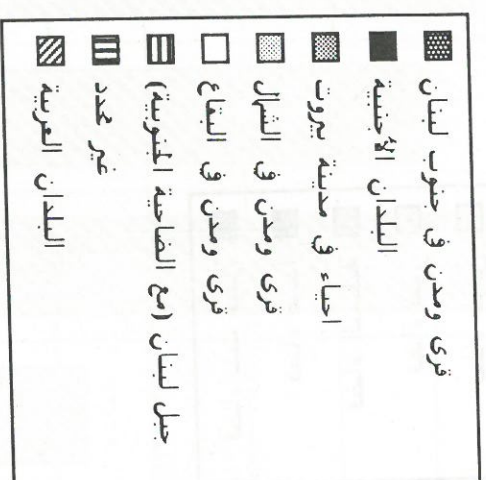 قرى ومدن في جنوب لبنان
البلدان الأجنبية
احياء في مدينة بيروت
قرى ومدن في الشمال
قرى ومدن في البقاع
جبل لبنان (مع الضاحية الجنوبية)
غير محدد
البلدان العربية